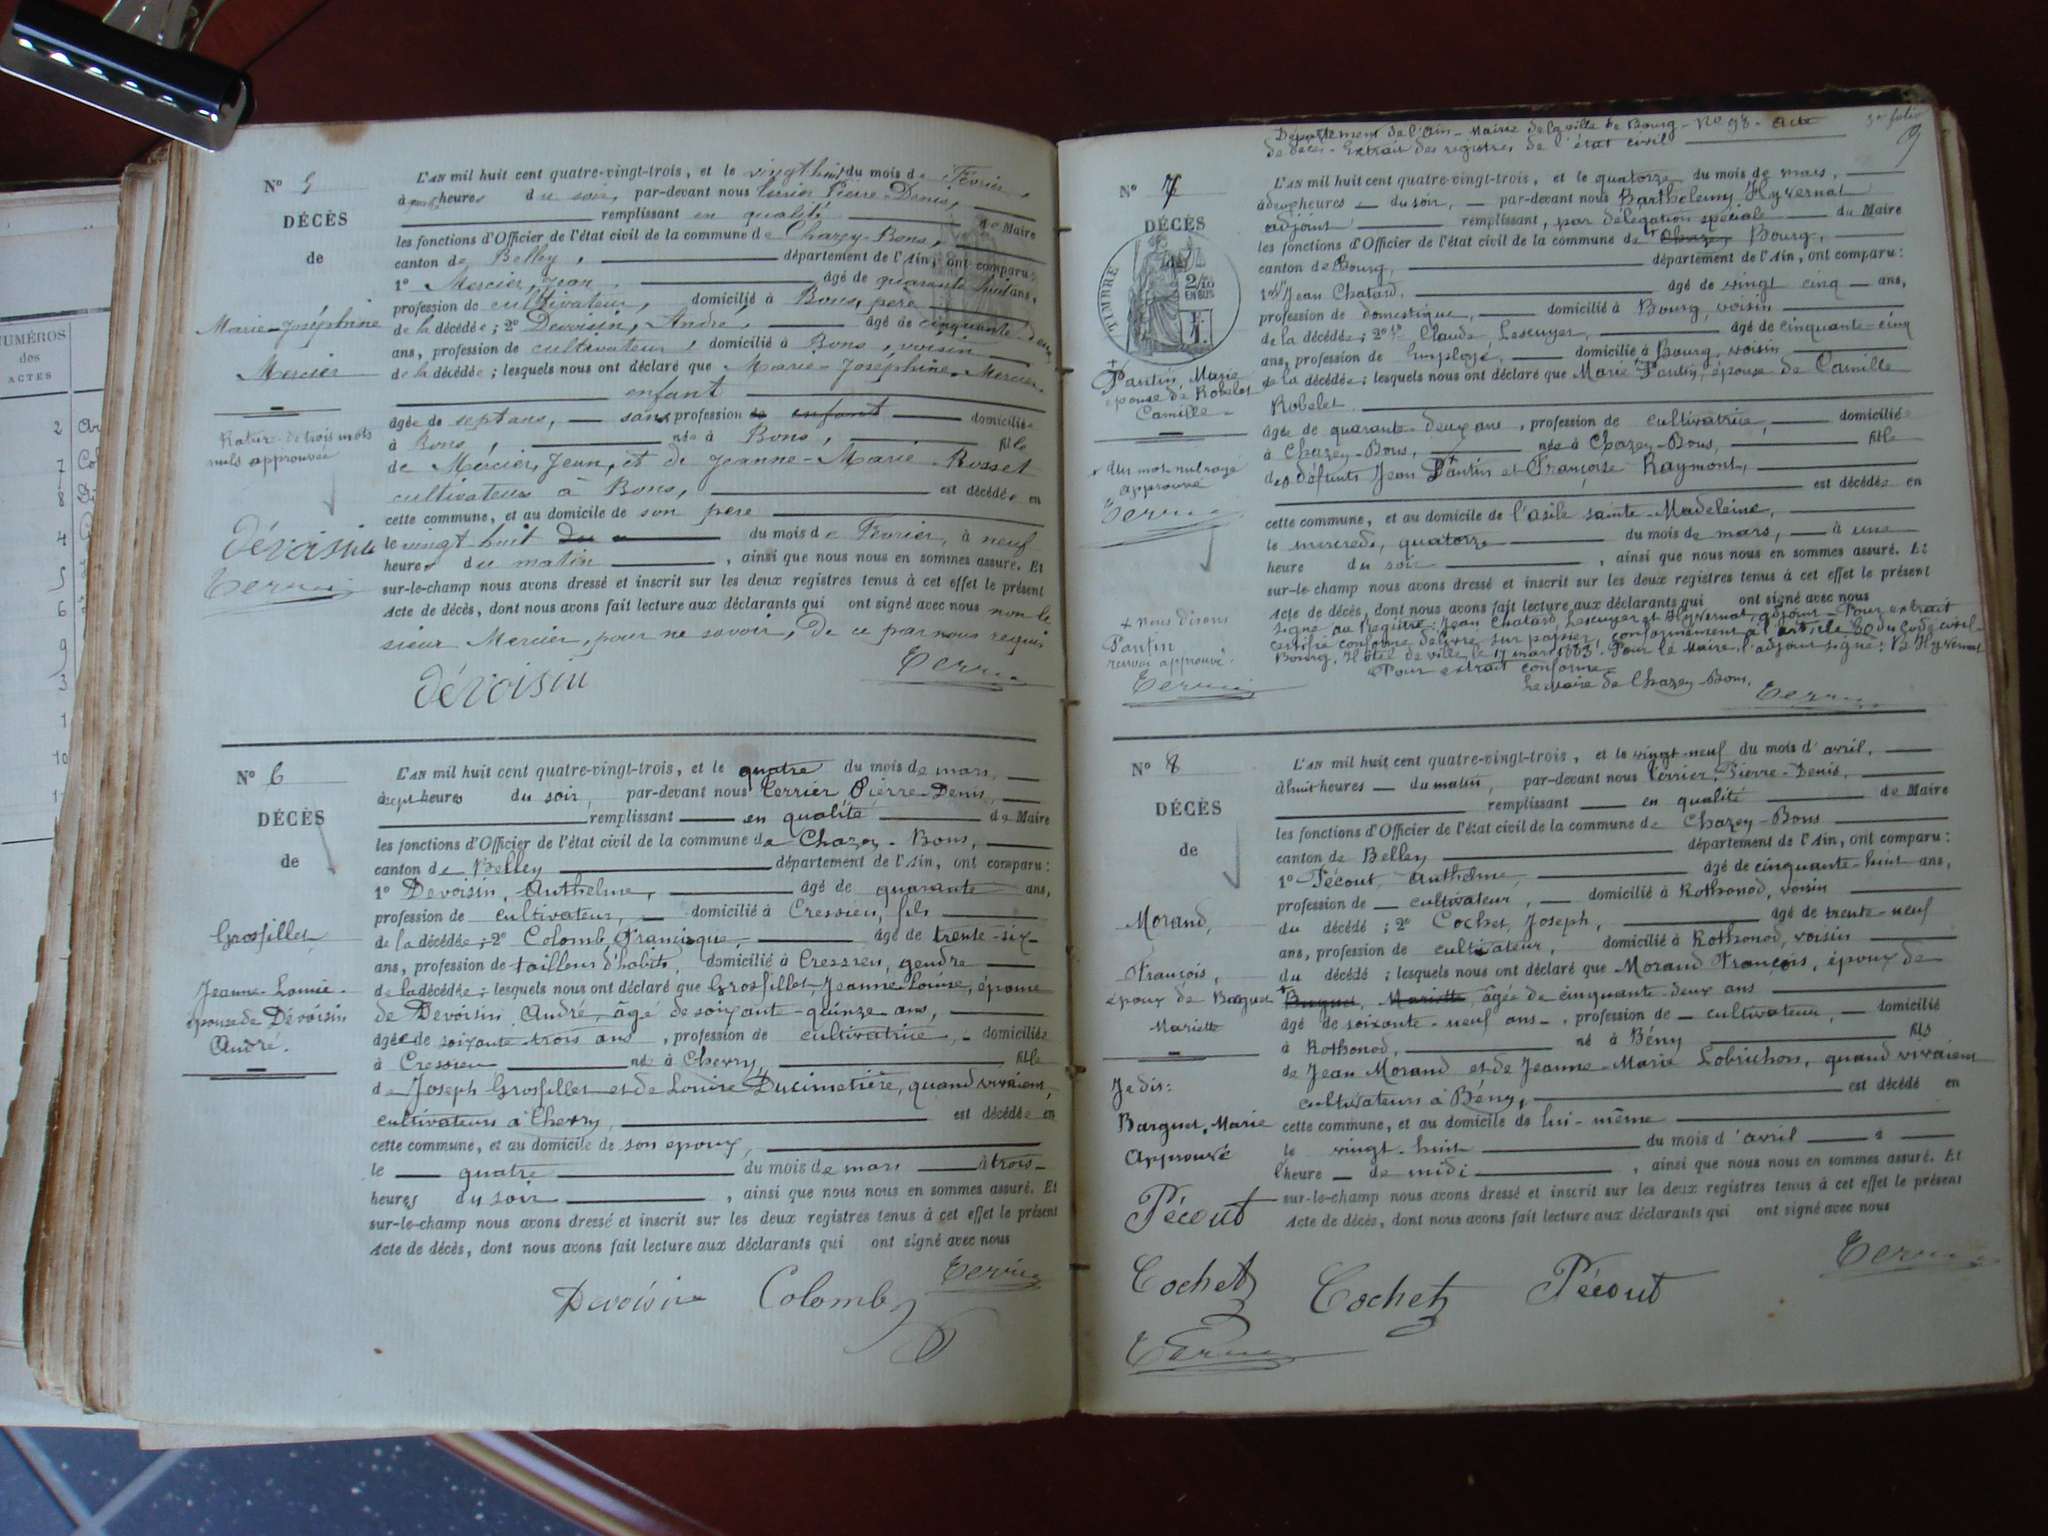 NUMÉROS
des
ACTES
2
7
8
4
5
6
9
3
1
10
N° 5
DÉCÈS
de
Marie-Joséphine
Mercier
Rature de trois mots
nuls approuvée
Dévoisin
L'AN mil huit cent quatre-vingt-trois, et le vingt huit du mois de Février,
à heures du soir, par-devant nous Terrier Pierre Denis,
remplissant en qualité de Maire
les fonctions d'Officier de l'état civil de la commune de Chazey-Bons,
canton de Belley, département de l'Ain, ont comparu:
1° Mercier, Jean, âgé de quarante huit ans,
profession de cultivateur, domicilié à Bons, père
de la décédée; 2° Devoisin, André, âgé de cinquante deux
ans, profession de cultivateur, domicilié à Bons, voisin
de la décédée; lesquels nous ont déclaré que Marie-Joséphine Mercier
enfant
âgée de sept ans, sans profession de enfant domiciliée
à Bons, née à Bons, fille
de Mercier, Jean, et de Jeanne-Marie Rosset
cultivateurs à Bons, est décédée en
cette commune, et au domicile de son père
le vingt huit du mois de Février, à neuf
heures du matin, ainsi que nous nous en sommes assuré. Et
sur-le-champ nous avons dressé et inscrit sur les deux registres tenus à cet effet le présent
Acte de décès, dont nous avons fait lecture aux déclarants qui ont signé avec nous non le
sieur Mercier, pour ne savoir, de ce par nous requis
Dévoisin
N° 6
DÉCÈS
de
Grosfillet
Jeanne-Louise
épouse de Dévoisin
André.
L'AN mil huit cent quatre-vingt-trois, et le quatre du mois de mars,
à sept heures du soir, par-devant nous Terrier Pierre-Denis,
remplissant en qualité de Maire
les fonctions d'Officier de l'état civil de la commune de Chazey-Bons,
canton de Belley département de l'Ain, ont comparu:
1° Devoisin, Anthelme, âgé de quarante ans,
profession de cultivateur, domicilié à Cressieu, fils
de la décédée; 2° Colomb, Francisque, âgé de trente-six
ans, profession de tailleur d'habits, domicilié à Cressieu, gendre
de la décédée; lesquels nous ont déclaré que Grosfillet, Jeanne Louise, épouse
de Devoisin André, âgé de soixante-quinze ans,
âgée de soixante trois ans, profession de cultivatrice, domiciliée
à Cressieu né à Chevry, fille
de Joseph Grosfillet et de Louise Ducimetière, quand vivaient,
cultivateurs à Chevry, est décédée en
cette commune, et au domicile de son époux,
le quatre du mois de mars à trois
heures du soir, ainsi que nous nous en sommes assuré. Et
sur-le-champ nous avons dressé et inscrit sur les deux registres tenus à cet effet le présent
Acte de décès, dont nous avons fait lecture aux déclarants qui ont signé avec nous
Devoisin Colomb
Département de l'Ain - Mairie de la ville de Bourg - N° 98 - Acte
de décès - Extrait des registres de l'état civil
3e folio
9
N° 7
DÉCÈS
TIMBRE
2/10
EN SUS
Pantin, Marie
épouse de Robelet
Camille
Un mot nul rayé
approuvé
+ nous disons
Pantin
renvoi approuvé.
L'AN mil huit cent quatre-vingt-trois, et le quatorze du mois de mars,
à deux heures du soir, par-devant nous Barthelemy Hyvernat
adjoint remplissant, par délégation spéciale du Maire
les fonctions d'Officier de l'état civil de la commune de Chazey Bourg,
canton de Bourg, département de l'Ain, ont comparu:
1° Jean Chatard, âgé de vingt cinq ans,
profession de domestique, domicilié à Bourg, voisin
de la décédée; 2° Claude Lescuyer, âgé de cinquante-cinq
ans, profession de Employé, domicilié à Bourg, voisin
de la décédée; lesquels nous ont déclaré que Marie Pantin, épouse de Camille
Robelet
âgée de quarante-deux ans, profession de cultivatrice, domiciliée
à Chazey-Bons, née à Chazey-Bons, fille
des défunts Jean Pantin et Françoise Raymont,
est décédée en
cette commune, et au domicile de l'asile sainte-Madeleine,
le mercredi, quatorze du mois de mars, à une
heure du soir, ainsi que nous nous en sommes assuré. Et
sur-le-champ nous avons dressé et inscrit sur les deux registres tenus à cet effet le présent
Acte de décès, dont nous avons fait lecture aux déclarants qui ont signé avec nous
signé au registre: Jean Chatard, Lescuyer et Hyvernat, adjoint - Pour extrait
certifié conforme délivré sur papier, conformément à l'article 80 du Code civil
Bourg, Hôtel de ville, le 17 mars 1883. Pour le Maire, l'adjoint signé: B. Hyvernat
Pour extrait conforme
Le Maire de Chazey-Bons.
N° 8
DÉCÈS
de
Morand,
François,
époux de Barguet
Mariette
Je dis:
Barguet, Marie
Approuvé
Pécout
Cochet
L'AN mil huit cent quatre-vingt-trois, et le vingt-neuf du mois d'avril,
à huit heures du matin, par-devant nous Terrier, Pierre-Denis,
remplissant en qualité de Maire
les fonctions d'Officier de l'état civil de la commune de Chazey-Bons
canton de Belley département de l'Ain, ont comparu:
1° Pécout, Anthelme, âgé de cinquante-huit ans,
profession de cultivateur, domicilié à Rothonod, voisin
du décédé; 2° Cochet, Joseph, âgé de trente-neuf
ans, profession de cultivateur, domicilié à Rothonod, voisin
du décédé; lesquels nous ont déclaré que Morand François, époux de
Barguet, Mariette, âgée de cinquante-deux ans
âgé de soixante-neuf ans, profession de cultivateur, domicilié
à Rothonod, né à Bény fils
de Jean Morand et de Jeanne-Marie Lobrichon, quand vivaient
cultivateurs à Bény, est décédé en
cette commune, et au domicile de lui-même
le vingt-huit du mois d'avril à
l'heure de midi, ainsi que nous nous en sommes assuré. Et
sur-le-champ nous avons dressé et inscrit sur les deux registres tenus à cet effet le présent
Acte de décès, dont nous avons fait lecture aux déclarants qui ont signé avec nous
Cochet Pécout